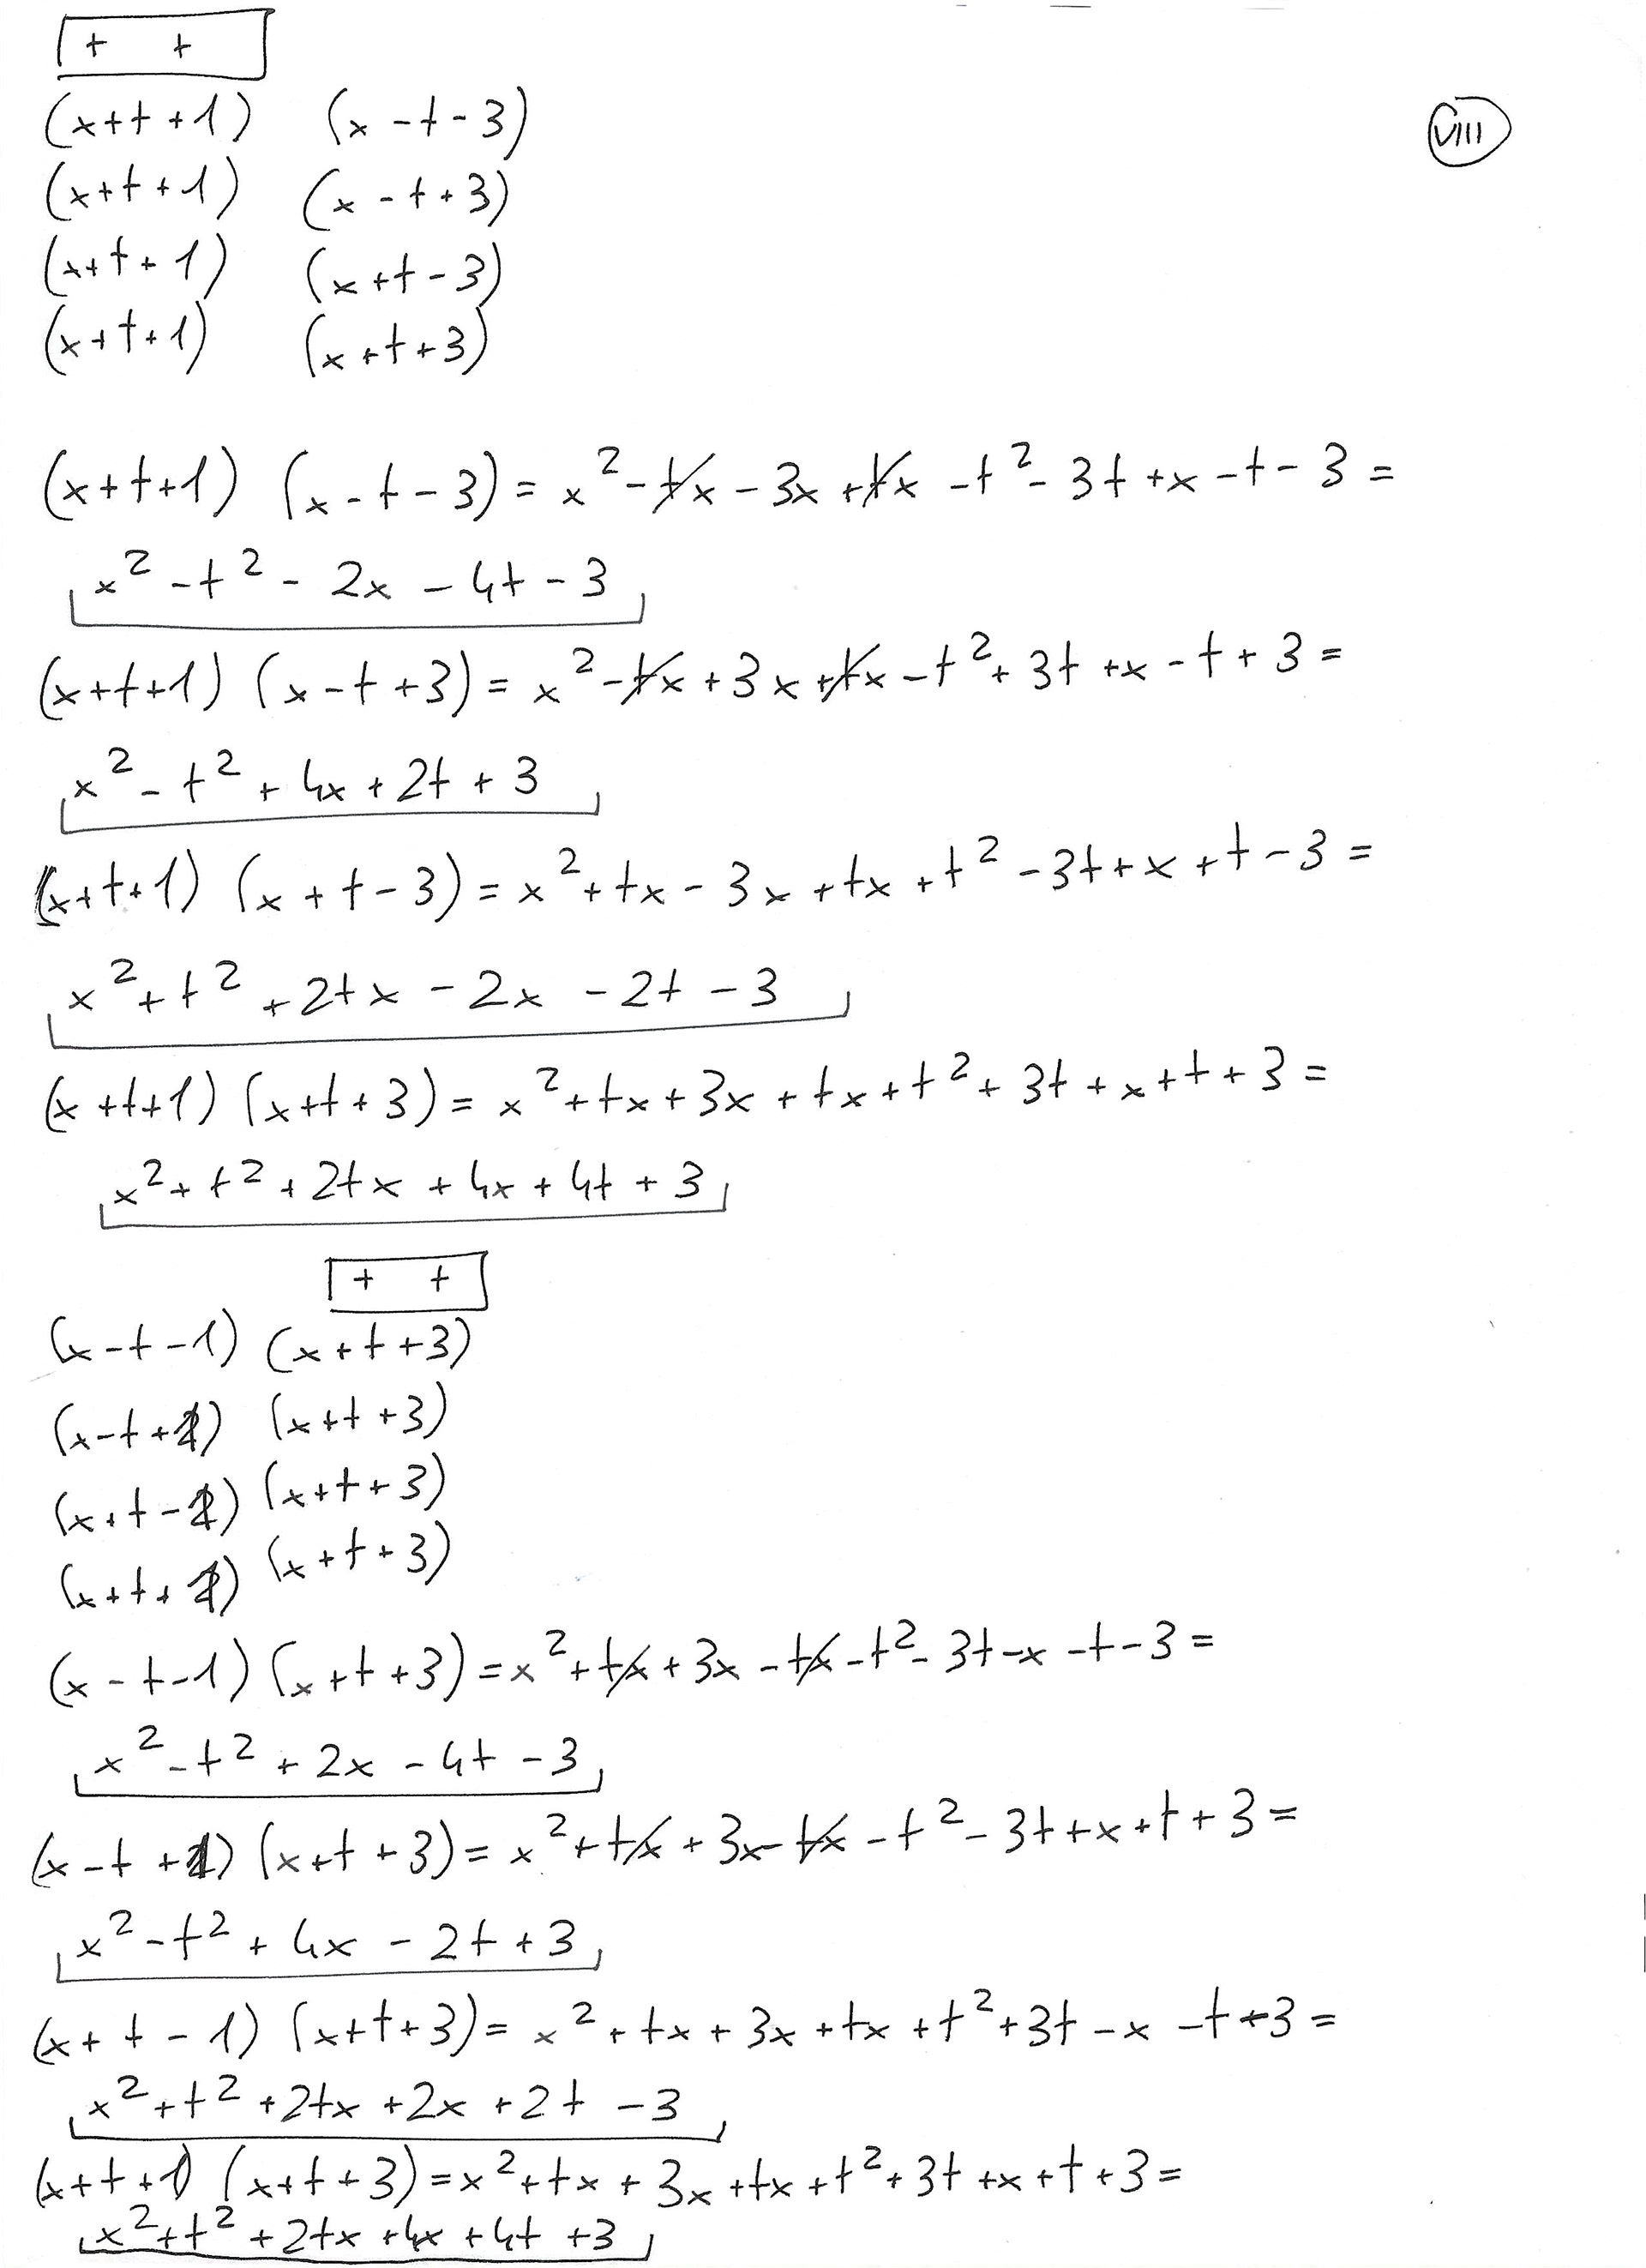 + +
(x+t+1) (x-t-3)
VIII
(x+t+1) (x-t+3)
(x+t+1) (x+t-3)
(x+t+1) (x+t+3)
(x+t+1) (x-t-3) = x² - tx - 3x + tx - t² - 3t + x - t - 3 =
x² - t² - 2x - 4t - 3
(x+t+1) (x-t+3) = x² - tx + 3x + tx - t² + 3t + x - t + 3 =
x² - t² + 4x + 2t + 3
(x+t+1) (x+t-3) = x² + tx - 3x + tx + t² - 3t + x + t - 3 =
x² + t² + 2tx - 2x - 2t - 3
(x+t+1) (x+t+3) = x² + tx + 3x + tx + t² + 3t + x + t + 3 =
x² + t² + 2tx + 4x + 4t + 3
+ +
(x-t-1) (x+t+3)
(x-t+1) (x+t+3)
(x+t-1) (x+t+3)
(x+t+1) (x+t+3)
(x-t-1) (x+t+3) = x² + tx + 3x - tx - t² - 3t - x - t - 3 =
x² - t² + 2x - 4t - 3
(x-t+1) (x+t+3) = x² + tx + 3x - tx - t² - 3t + x + t + 3 =
x² - t² + 4x - 2t + 3
(x+t-1) (x+t+3) = x² + tx + 3x + tx + t² + 3t - x - t - 3 =
x² + t² + 2tx + 2x + 2t - 3
(x+t+1) (x+t+3) = x² + tx + 3x + tx + t² + 3t + x + t + 3 =
x² + t² + 2tx + 4x + 4t + 3